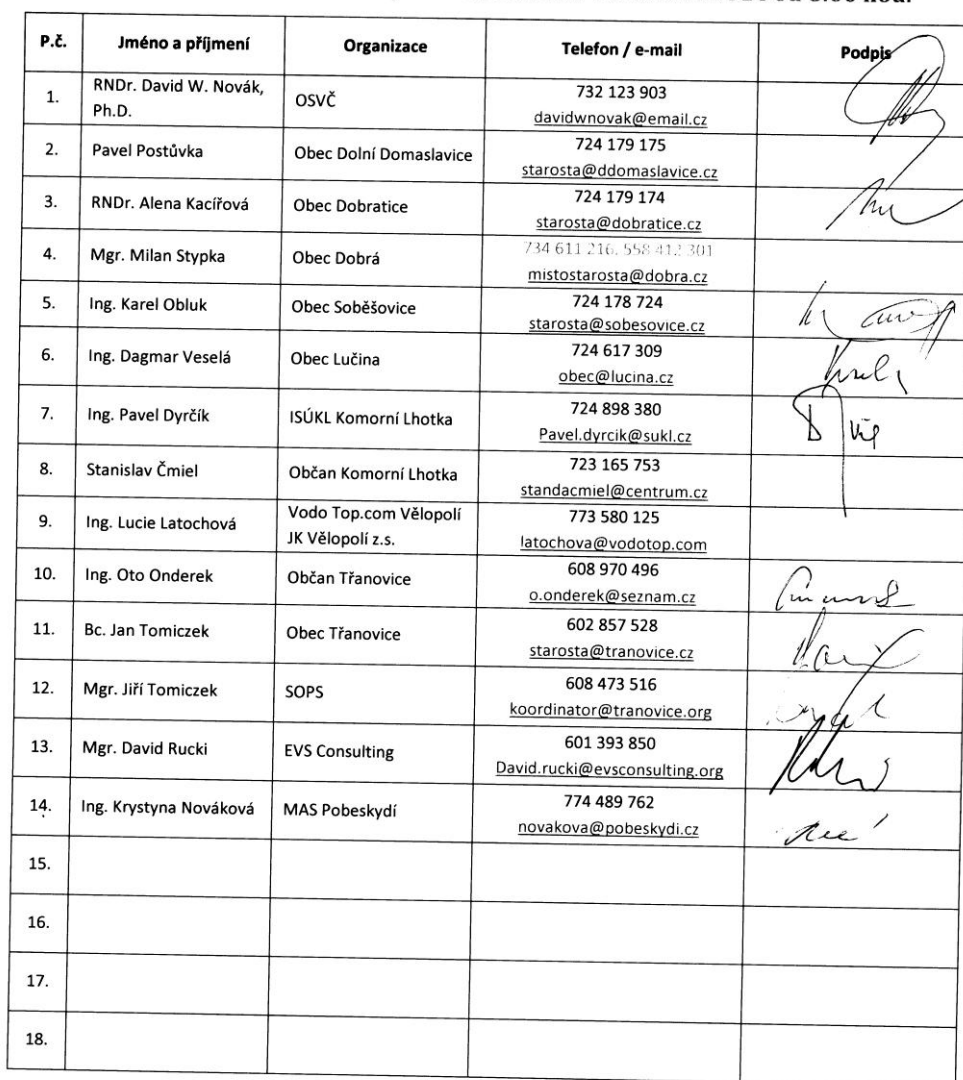 P.č. Jméno a příjmení Organizace Telefon / e-mail Podpis
1. RNDr. David W. Novák, Ph.D. OSVČ 732 123 903
davidwnovak@email.cz
2. Pavel Postůvka Obec Dolní Domaslavice 724 179 175
starosta@ddomaslavice.cz
3. RNDr. Alena Kacířová Obec Dobratice 724 179 174
starosta@dobratice.cz
4. Mgr. Milan Stypka Obec Dobrá 734 611 216, 558 412 301
mistostarosta@dobra.cz
5. Ing. Karel Obluk Obec Soběšovice 724 178 724
starosta@sobesovice.cz
6. Ing. Dagmar Veselá Obec Lučina 724 617 309
obec@lucina.cz
7. Ing. Pavel Dyrčík ISÚKL Komorní Lhotka 724 898 380
Pavel.dyrcik@sukl.cz
8. Stanislav Čmiel Občan Komorní Lhotka 723 165 753
standacmiel@centrum.cz
9. Ing. Lucie Latochová Vodo Top.com Vělopolí 773 580 125
JK Vělopolí z.s. latochova@vodotop.com
10. Ing. Oto Onderek Občan Třanovice 608 970 496
o.onderek@seznam.cz
11. Bc. Jan Tomiczek Obec Třanovice 602 857 528
starosta@tranovice.cz
12. Mgr. Jiří Tomiczek SOPS 608 473 516
koordinator@tranovice.org
13. Mgr. David Rucki EVS Consulting 601 393 850
David.rucki@evsconsulting.org
14. Ing. Krystyna Nováková MAS Pobeskydí 774 489 762
novakova@pobeskydi.cz
15.
16.
17.
18.